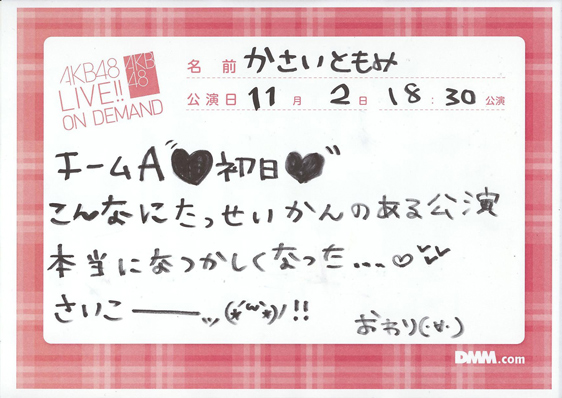 AKB48
LIVE!!
ON DEMAND
AKB
48
名前 かさいともみ
公演日 11月 2日 18:30公演
チームA♥初日♥
こんなにたっせいかんのある公演
本当になつかしくなった...♡
さいこーーーッ(*´ω`*)ノ!!
おわり(・∀・)
DMM.com